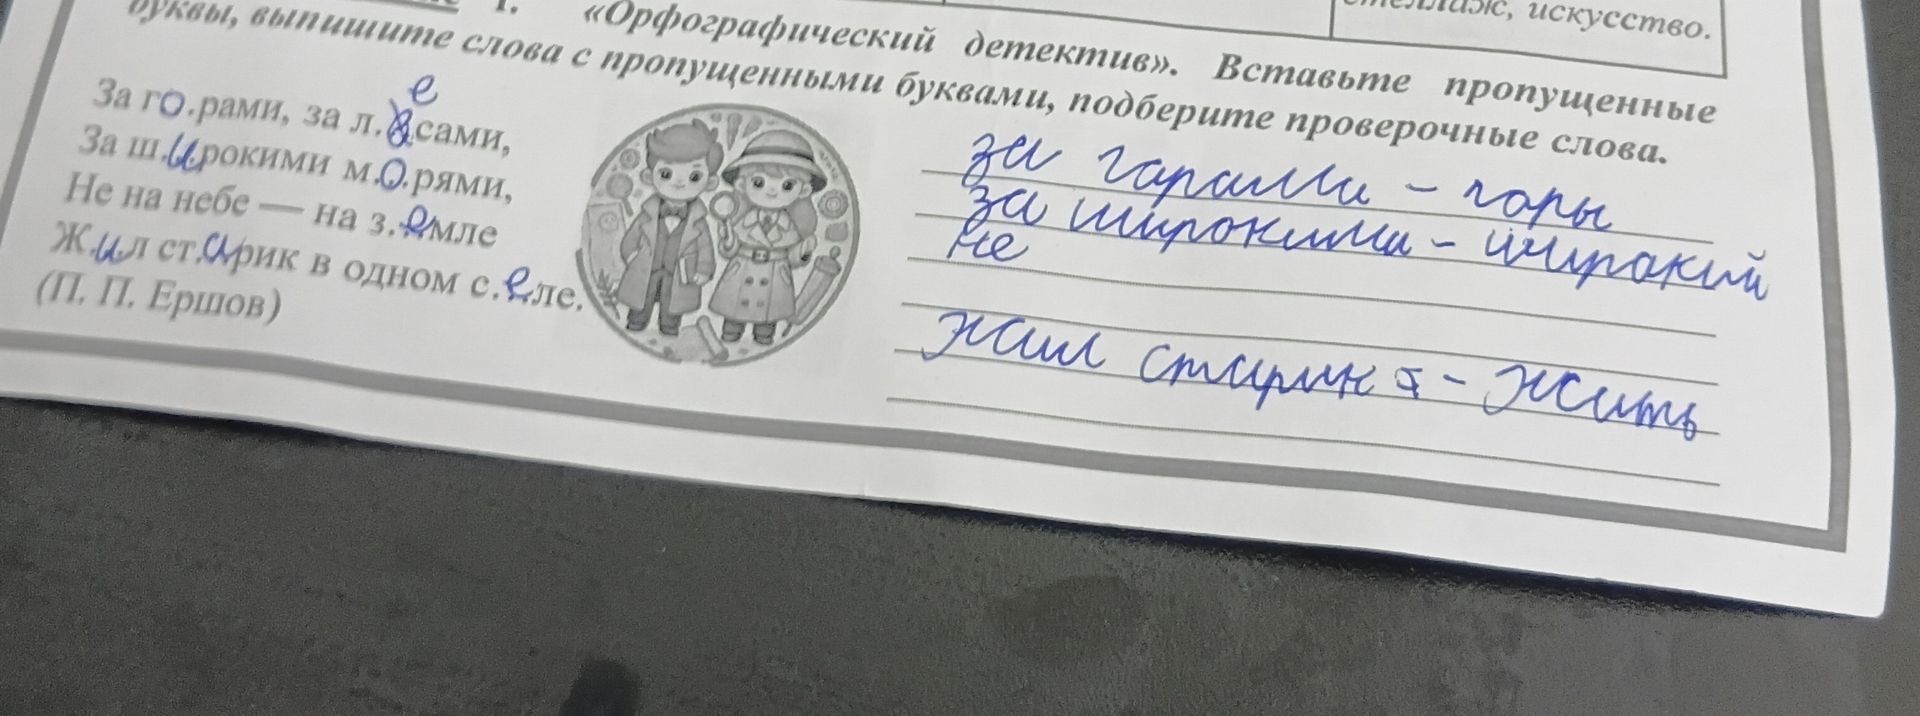 1. «Орфографический детектив». Вставьте пропущенные
буквы, выпишите слова с пропущенными буквами, подберите проверочные слова.
искусство.
За го.рами, за л.есами,
За ш.ирокими м.о.рями,
Не на небе — на з.емле
Ж.ил ст.арик в одном с.еле.
(П. П. Ершов)
за гарами - горы
за широкими - широкий
Не
жил старик - жить